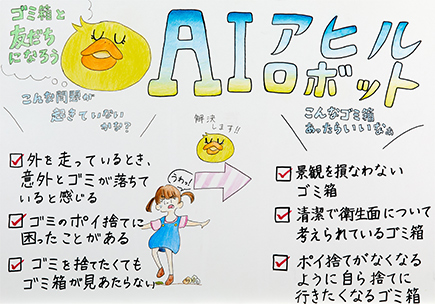 ゴミ箱と
友だち
になろう
AIアヒル
ロボット
こんな問題が
起きていない
かな?
解決
します!!
こんなゴミ箱
あったらいいなぁ
外を走っているとき、
意外とゴミが落ちて
いると感じる
ゴミのポイ捨てに
困ったことがある
ゴミを捨てたくても
ゴミ箱が見あたらない
うわっ!
景観を損なわない
ゴミ箱
清潔で衛生面について
考えられているゴミ箱
ポイ捨てがなくなる
ように自ら捨てに
行きたくなるゴミ箱